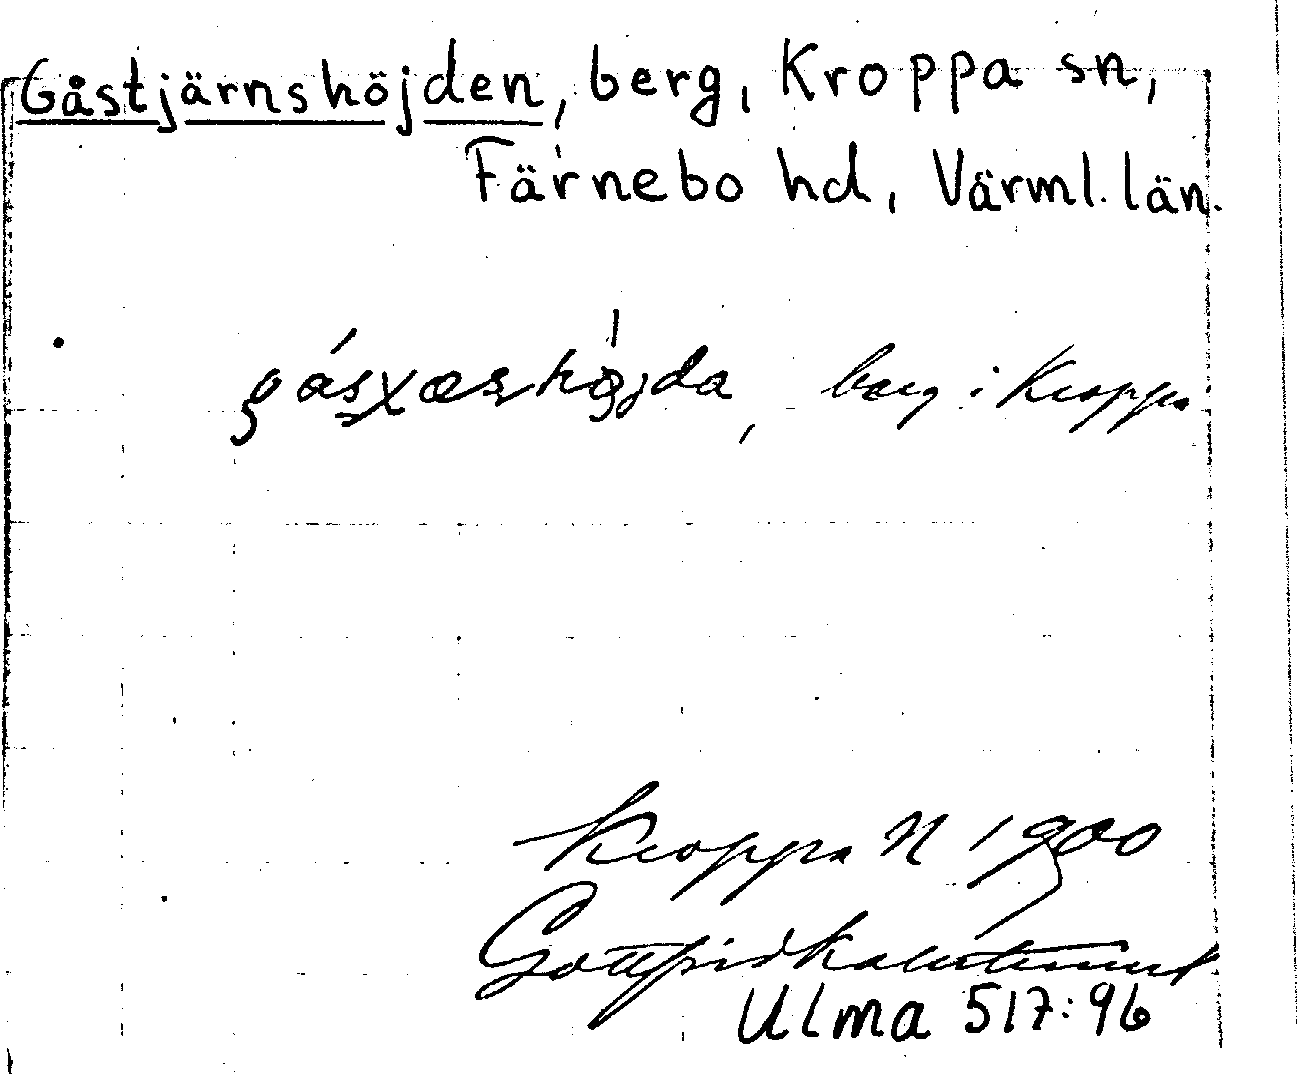 Gåstjärnshöjden, berg, Kroppa sn,
Färnebo hd, Värml. län.
berg i Kroppa
Kroppa N 1900
Gottfrid Kallstenius
Ulma 517:96